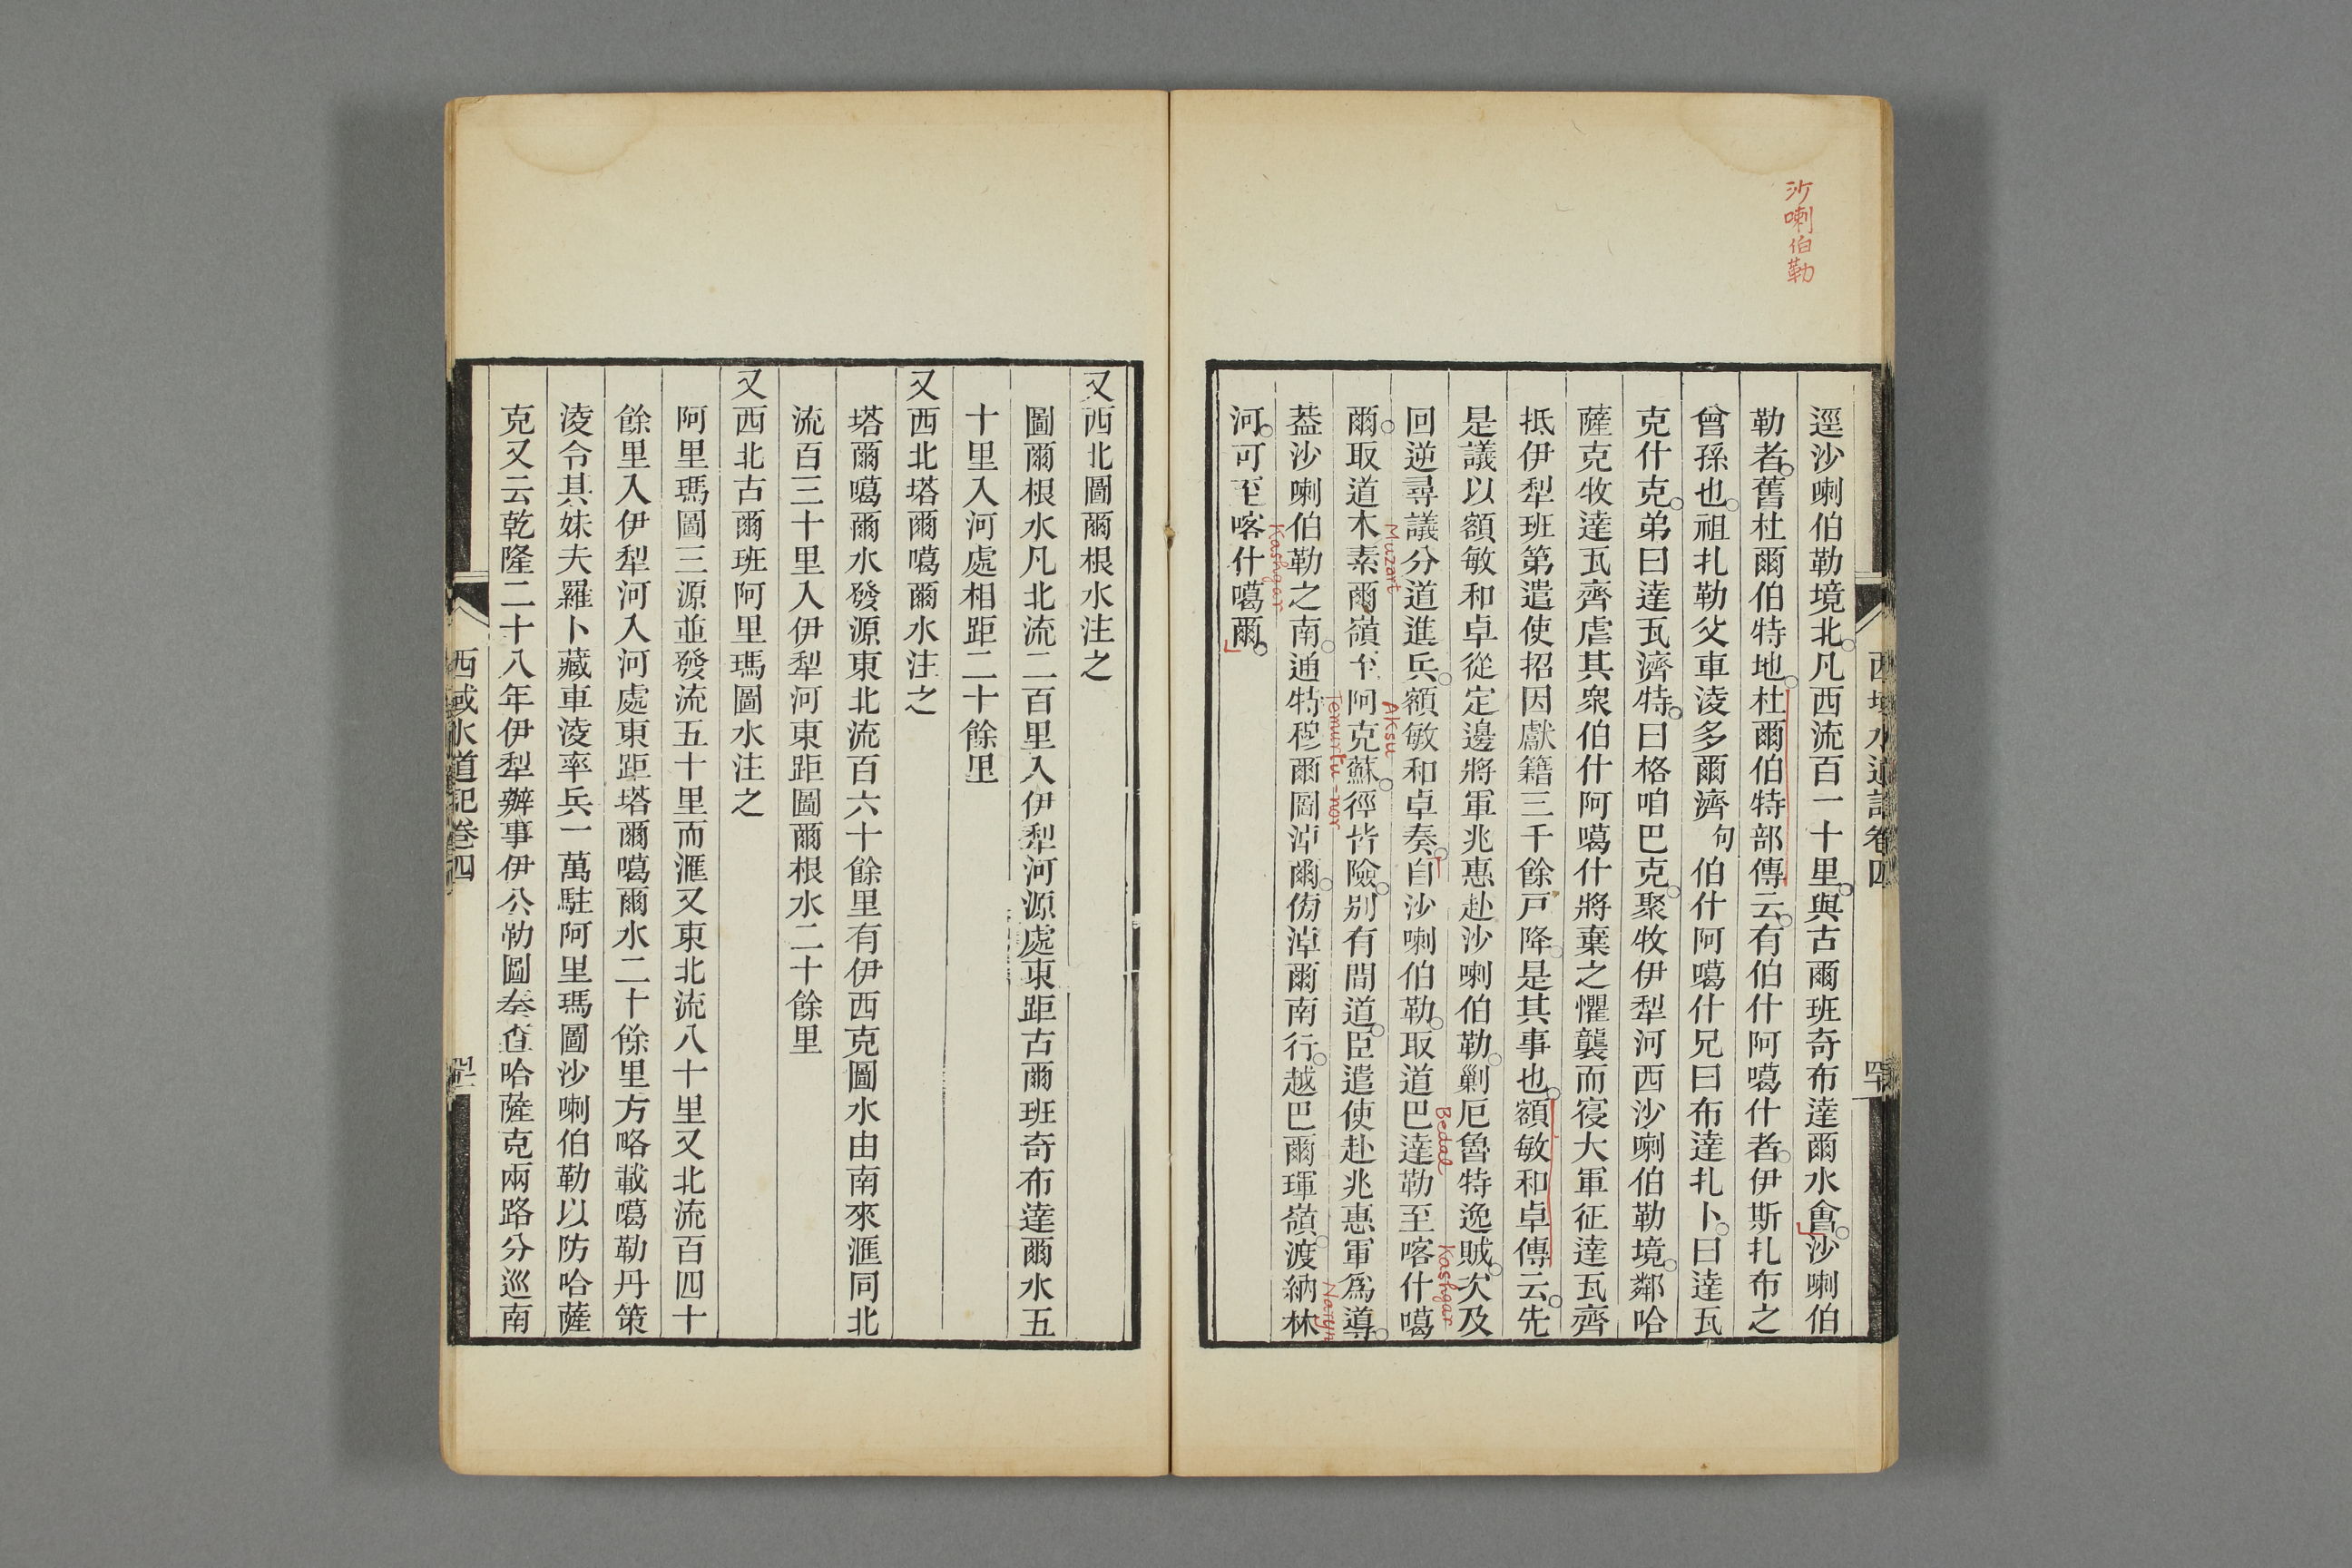 沙喇伯勒
西域水道記卷四
逕沙喇伯勒境北凡西流百一十里與古爾班奇布達爾水會沙喇伯
勒者舊杜爾伯特地杜爾伯特部傳云有伯什阿噶什者伊斯扎布之
曾孫也祖扎勒父車淩多爾濟句伯什阿噶什兄曰布達扎卜曰達瓦
克什克弟曰達瓦濟特曰格咱巴克聚牧伊犁河西沙喇伯勒境鄰哈
薩克牧達瓦齊虐其衆伯什阿噶什將棄之懼襲而寑大軍征達瓦齊
抵伊犁班第遣使招因獻籍三千餘戸降是其事也額敏和卓傳云先
是議以額敏和卓從定邊將軍兆惠赴沙喇伯勒剿厄魯特逸賊次及
Bedal
Kashgar
回逆尋議分道進兵額敏和卓奏自沙喇伯勒取道巴達勒至喀什噶
Muzart
Aksu
爾取道木素爾嶺至阿克蘇徑皆險别有間道臣遣使赴兆惠軍爲導
Temurtu-nor
Naryn
葢沙喇伯勒之南通特穆爾圖淖爾傍淖爾南行越巴爾琿嶺渡納林
Kashgar
河可至喀什噶爾
又西北圖爾根水注之
圖爾根水凡北流二百里入伊犁河源處東距古爾班奇布達爾水五
十里入河處相距二十餘里
又西北塔爾噶爾水注之
塔爾噶爾水發源東北流百六十餘里有伊西克圖水由南來滙同北
流百三十里入伊犁河東距圖爾根水二十餘里
又西北古爾班阿里瑪圖水注之
阿里瑪圖三源並發流五十里而滙又東北流八十里又北流百四十
餘里入伊犁河入河處東距塔爾噶爾水二十餘里方略載噶勒丹策
淩令其妹夫羅卜藏車淩率兵一萬駐阿里瑪圖沙喇伯勒以防哈薩
克又云乾隆二十八年伊犁辦事伊公勒圖奏查哈薩克兩路分巡南
西域水道記卷四